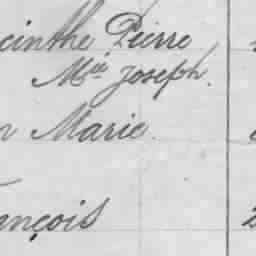 cinthe Pierre
Mie Joseph.
n Marie
ançois 2